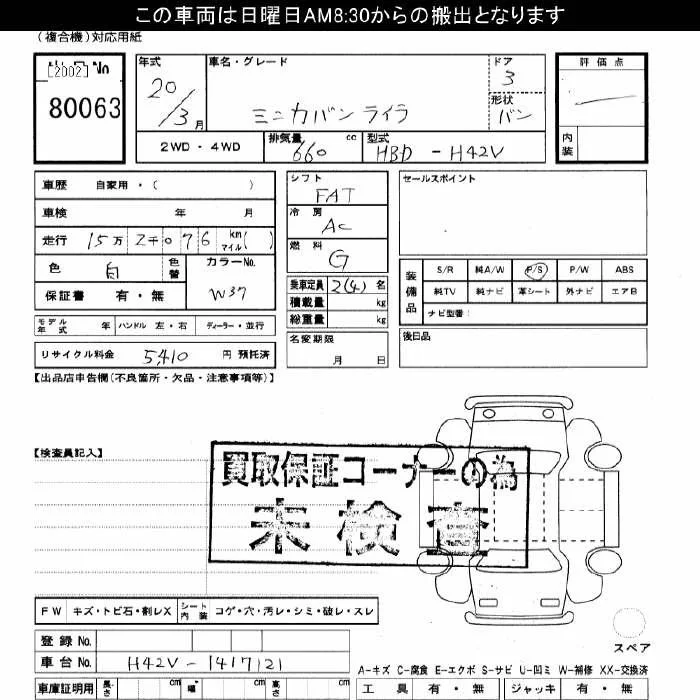 この車両は日曜日AM8:30からの搬出となります
(複合機)対応用紙
[2002] No
80063
年式
20/3月
車名・グレード
ミニカバン ライラ
ドア
3
形状
バン
評価点
内装
2WD・4WD
排気量 660 cc
型式 HBD - H42V
車歴 自家用・( )
車検 年 月
走行 15万2千076 km マイル( )
色 白 色替
カラーNo. W37
保証書 有・無
モデル年式 年 ハンドル 左・右 ディーラー・並行
リサイクル料金 5,410 円 預託済
シフト
FAT
冷房
AC
燃料
G
乗車定員 2(4) 名
積載量 kg
総重量 kg
名変期限
月 日
セールスポイント
装備品
S/R 純A/W P/S P/W ABS
純TV 純ナビ 革シート 外ナビ エアB
ナビ型番:
後日品
【出品店申告欄(不良箇所・欠品・注意事項等)】
【検査員記入】
買取保証コーナーの為
未検査
FW キズ・トビ石・割レX シート内装 コゲ・穴・汚レ・シミ・破レ・スレ
登録No.
車台No. H42V-1417121
車庫証明用 長さ cm 幅 cm 高さ cm
スペア
A-キズ C-腐食 E-エクボ S-サビ U-凹ミ W-補修 XX-交換済
工具 有・無 ジャッキ 有・無